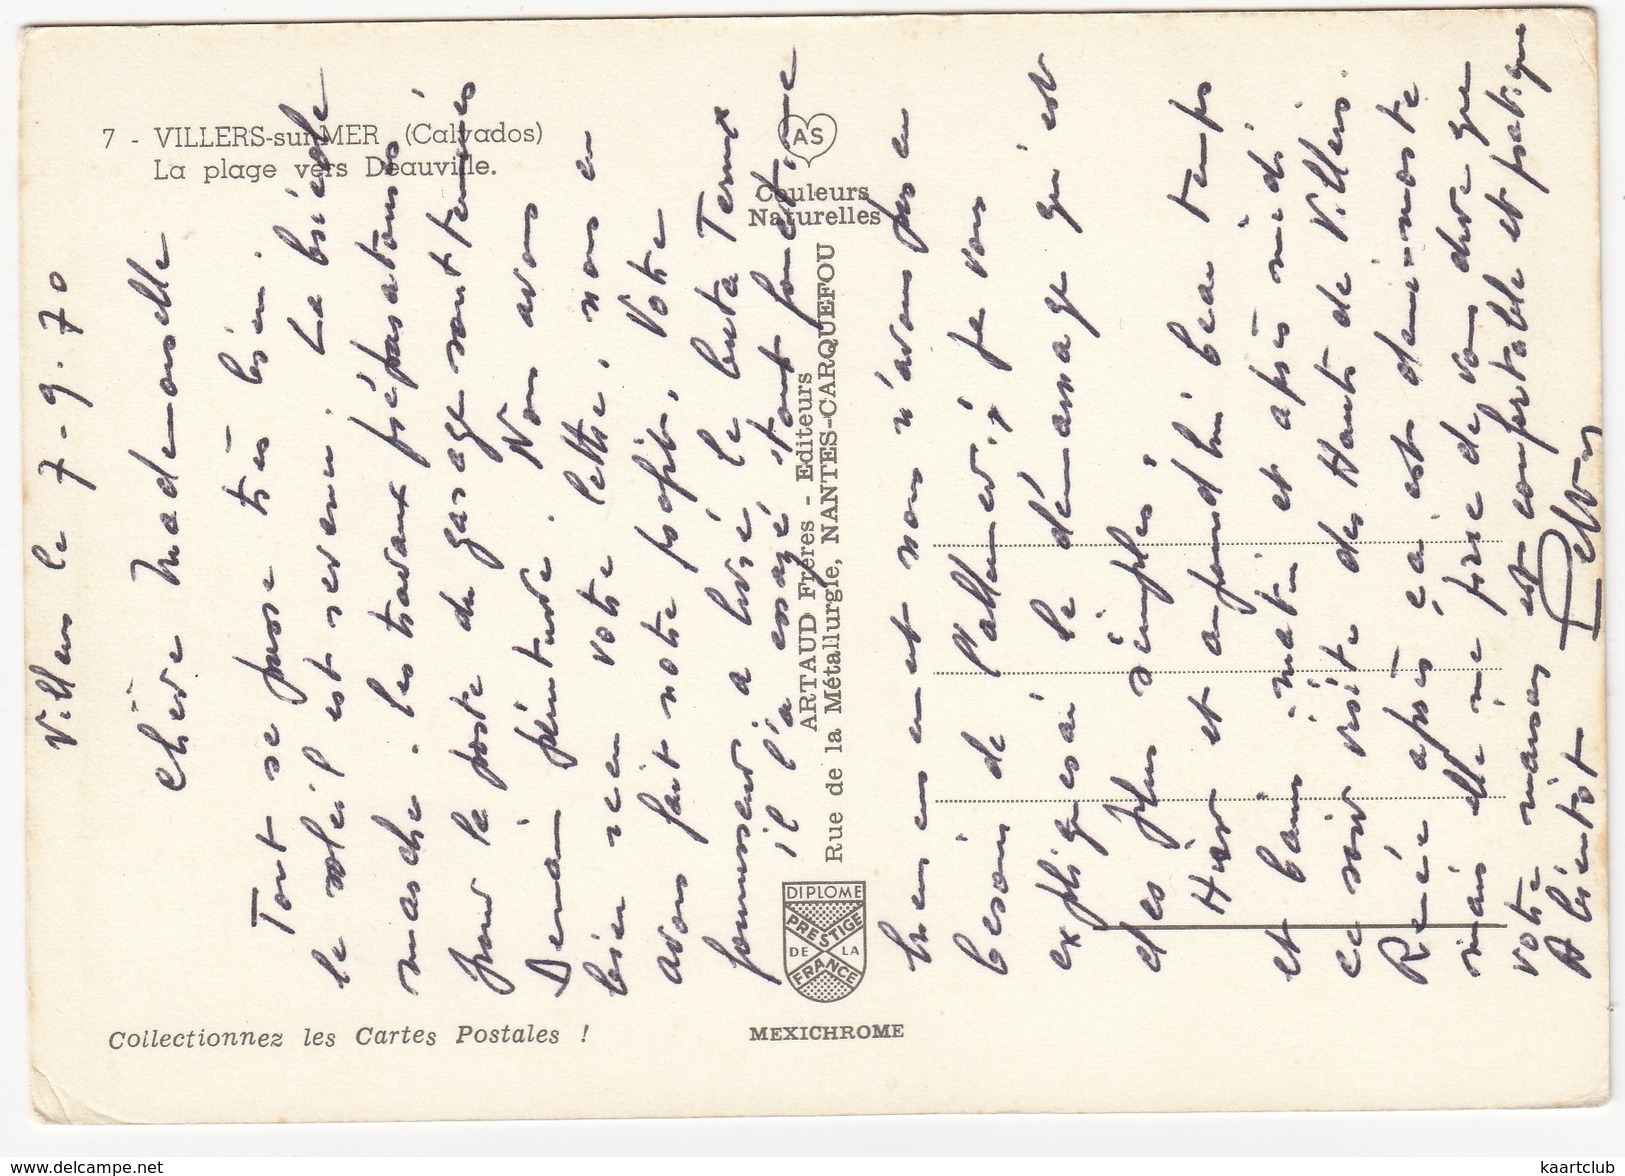 7 - VILLERS-sur-MER (Calvados)
La plage vers Deauville.
AS
Couleurs
Naturelles
ARTAUD Frères - Editeurs
Rue de la Métallurgie, NANTES-CARQUEFOU
DIPLOME
PRESTIGE
DE LA
FRANCE
MEXICHROME
Collectionnez les Cartes Postales !
Villers le 7-9.70
Chère Mademoiselle
Tout se passe très bien.
le soleil est revenu. La bricole
marche. les travaux préparatoires
pour la porte du garage sont terminés
Demain peinture. Nous avons
bien reçu votre lettre, nous en
avons fait notre profit. Votre
fournisseur a livré le buta Termx
il l'a essayé, tout fonctionne
heureusement nous n'avons pas eu
besoin de l'allumer, je vous
expliquerai le démarrage qui est
des plus simples.
Hier et aujourd'hui beau temps
et bains matin et après midi
ce soir visite des Hauts de Villers.
Renée après ça est demi-morte
mais elle me prie de vous dire que
votre maison est confortable et pratique
A bientôt
kaartclub
www.delcampe.net